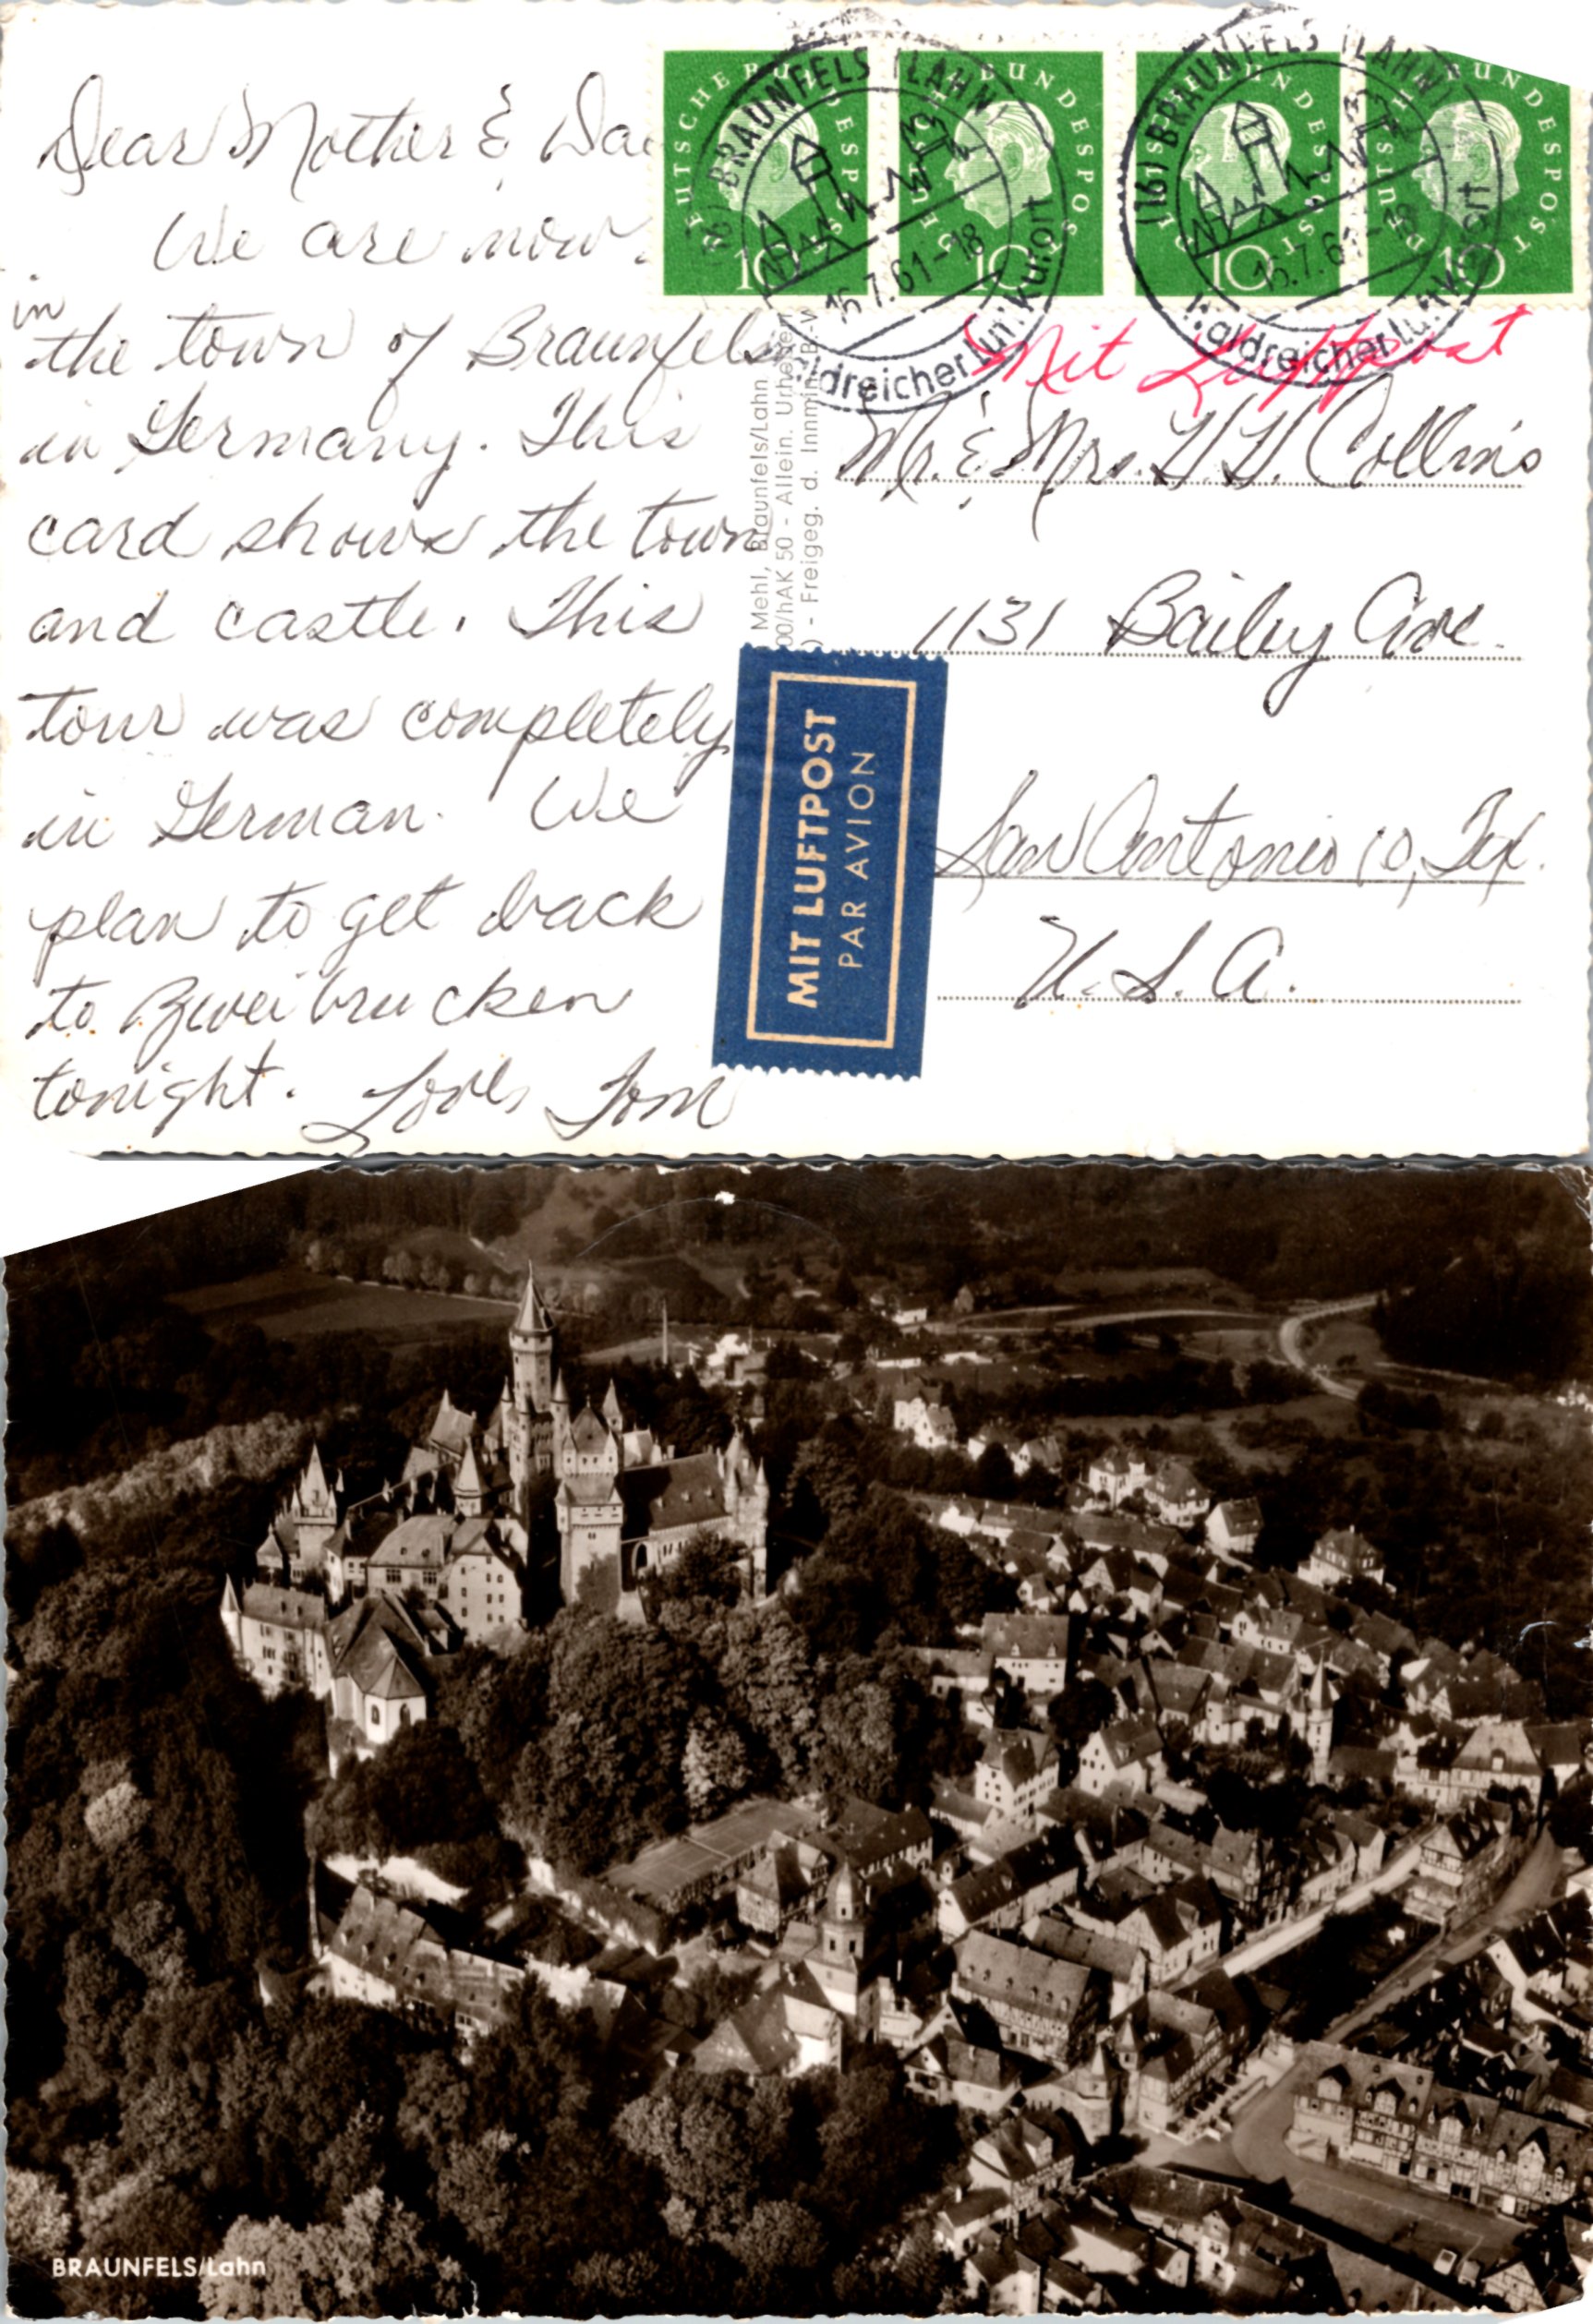 Dear Mother & Da
We are now
in
the town of Braunfels
in Germany. This
card shows the town
and castle. This
tour was completely
in German. We
plan to get back
to Zweibrucken
tonight. Love, Tom
DEUTSCHE BUNDESPOST
10
DEUTSCHE BUNDESPOST
10
DEUTSCHE BUNDESPOST
10
DEUTSCHE BUNDESPOST
10
(16) BRAUNFELS (LAHN)
16.7.61-18
aldreicher Luftkurort
(16) BRAUNFELS (LAHN)
15.7.61-18
aldreicher Luftkurort
Mit Luftpost
Mr. & Mrs. H. H. Collins
1131 Bailey Ave.
San Antonio 10, Tex.
U. S. A.
Mehl, Braunfels/Lahn
00/hAK 50 - Allein. Urheber
) - Freigeg. d. Innmin. B.-W
MIT LUFTPOST
PAR AVION
BRAUNFELS/Lahn